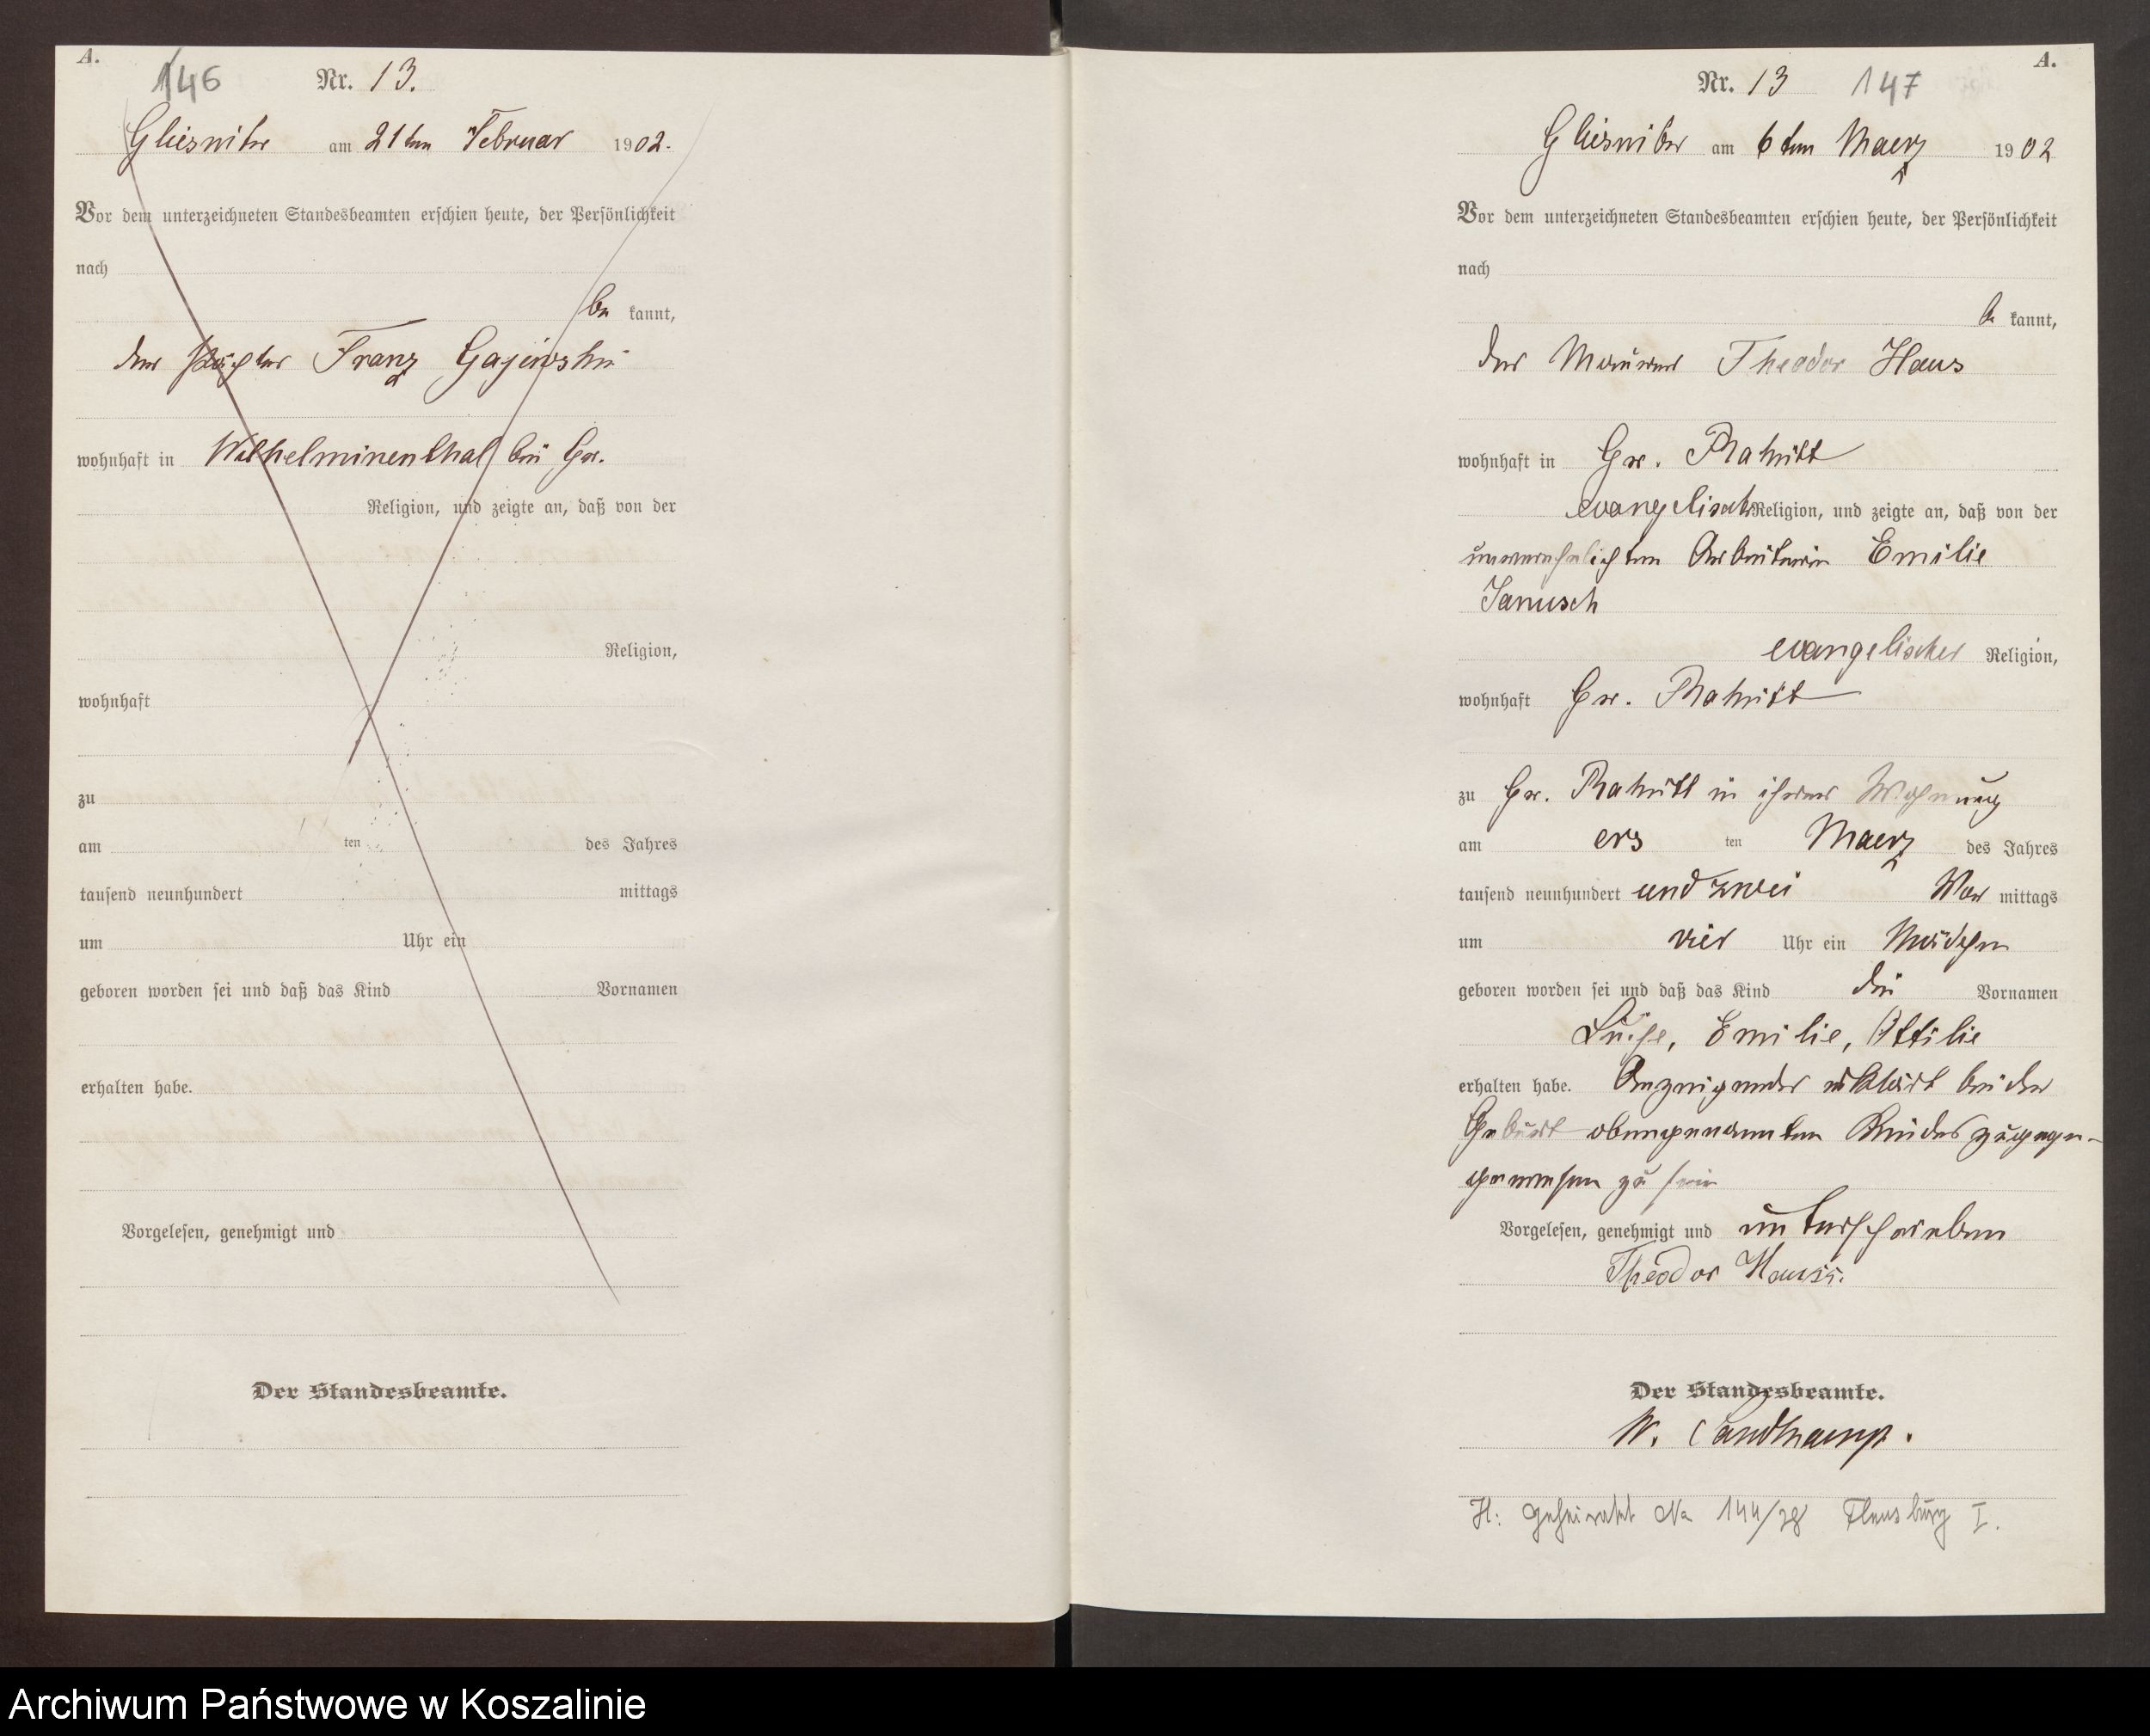 A.
146 Nr. 13.
Gliesnitz am 21ten Februar 1902.
Vor dem unterzeichneten Standesbeamten erschien heute, der Persönlichkeit
nach
be kannt,
der Pächter Franz Gajewski
wohnhaft in Wilhelminenthal bei Gr.
Religion, und zeigte an, daß von der
Religion,
wohnhaft
zu
am ten des Jahres
tausend neunhundert mittags
um Uhr ein
geboren worden sei und daß das Kind Vornamen
erhalten habe.
Vorgelesen, genehmigt und
Der Standesbeamte.
A.
Nr. 13 147
Gliesnitz am 6ten Maerz 1902
Vor dem unterzeichneten Standesbeamten erschien heute, der Persönlichkeit
nach
be kannt,
der Maurer Theodor Haus
wohnhaft in Gr. Rakitt
evangelisch Religion, und zeigte an, daß von der
unverehelichten Arbeiterin Emilie
Janusch
evangelischer Religion,
wohnhaft Gr. Rakitt
zu Gr. Rakitt in ihrer Wohnung
am ers ten Maerz des Jahres
tausend neunhundert und zwei Vor mittags
um vier Uhr ein Mädchen
geboren worden sei und daß das Kind die Vornamen
Luise, Emilie, Ottilie
erhalten habe. Anzeigender erklärt bei der
Geburt obengenannten Kindes zugegen
gewesen zu sein
Vorgelesen, genehmigt und unterschrieben
Theodor Hauss.
Der Standesbeamte.
W. Sandkamp.
H: geheiratet No 144/28 Flensburg I.
Archiwum Państwowe w Koszalinie